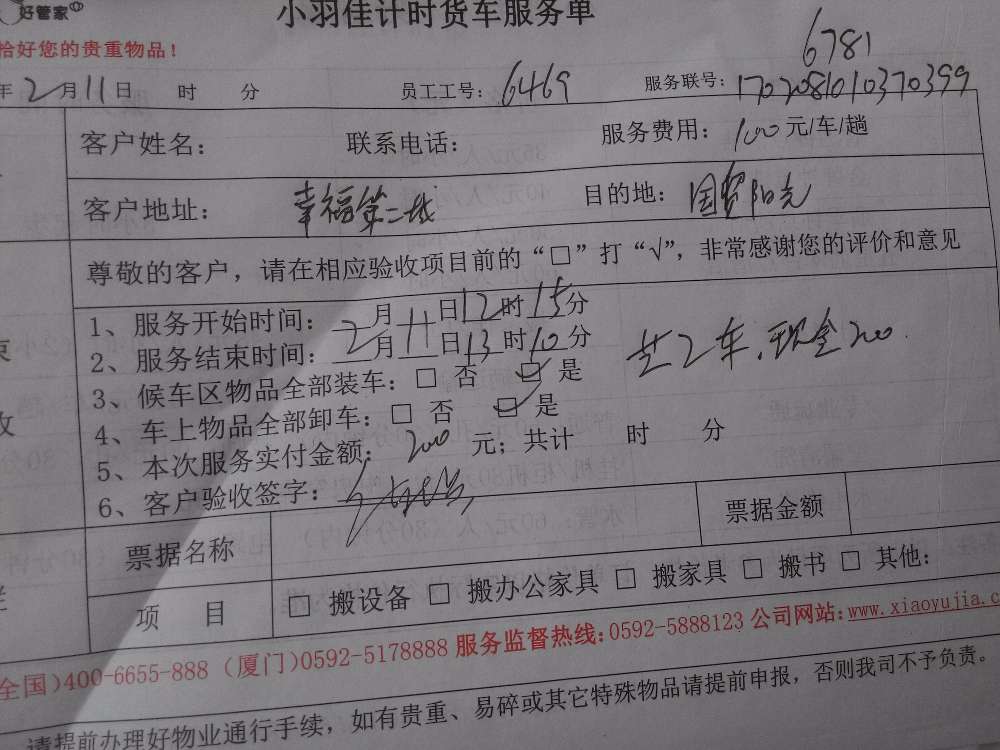 好管家
小羽佳计时货车服务单
恰好您的贵重物品！
6781
年2月11日 时 分 员工工号：6469 服务联号：1702081010370399
客户姓名： 联系电话： 服务费用：100元/车/趟
客户地址：幸福第二城 目的地：国贸阳光
尊敬的客户，请在相应验收项目前的“□”打“√”，非常感谢您的评价和意见
1、服务开始时间：2月11日12时15分
2、服务结束时间：2月11日13时10分
共2车，现金200
3、候车区物品全部装车：□ 否 ☑ 是
4、车上物品全部卸车：□ 否 ☑ 是
5、本次服务实付金额：200元；共计 时 分
6、客户验收签字：
票据名称 票据金额
项 目 □ 搬设备 □ 搬办公家具 □ 搬家具 □ 搬书 □ 其他：
全国)400-6655-888 (厦门)0592-5178888 服务监督热线:0592-5888123 公司网站:www.xiaoyujia.c
请提前办理好物业通行手续，如有贵重、易碎或其它特殊物品请提前申报，否则我司不予负责。